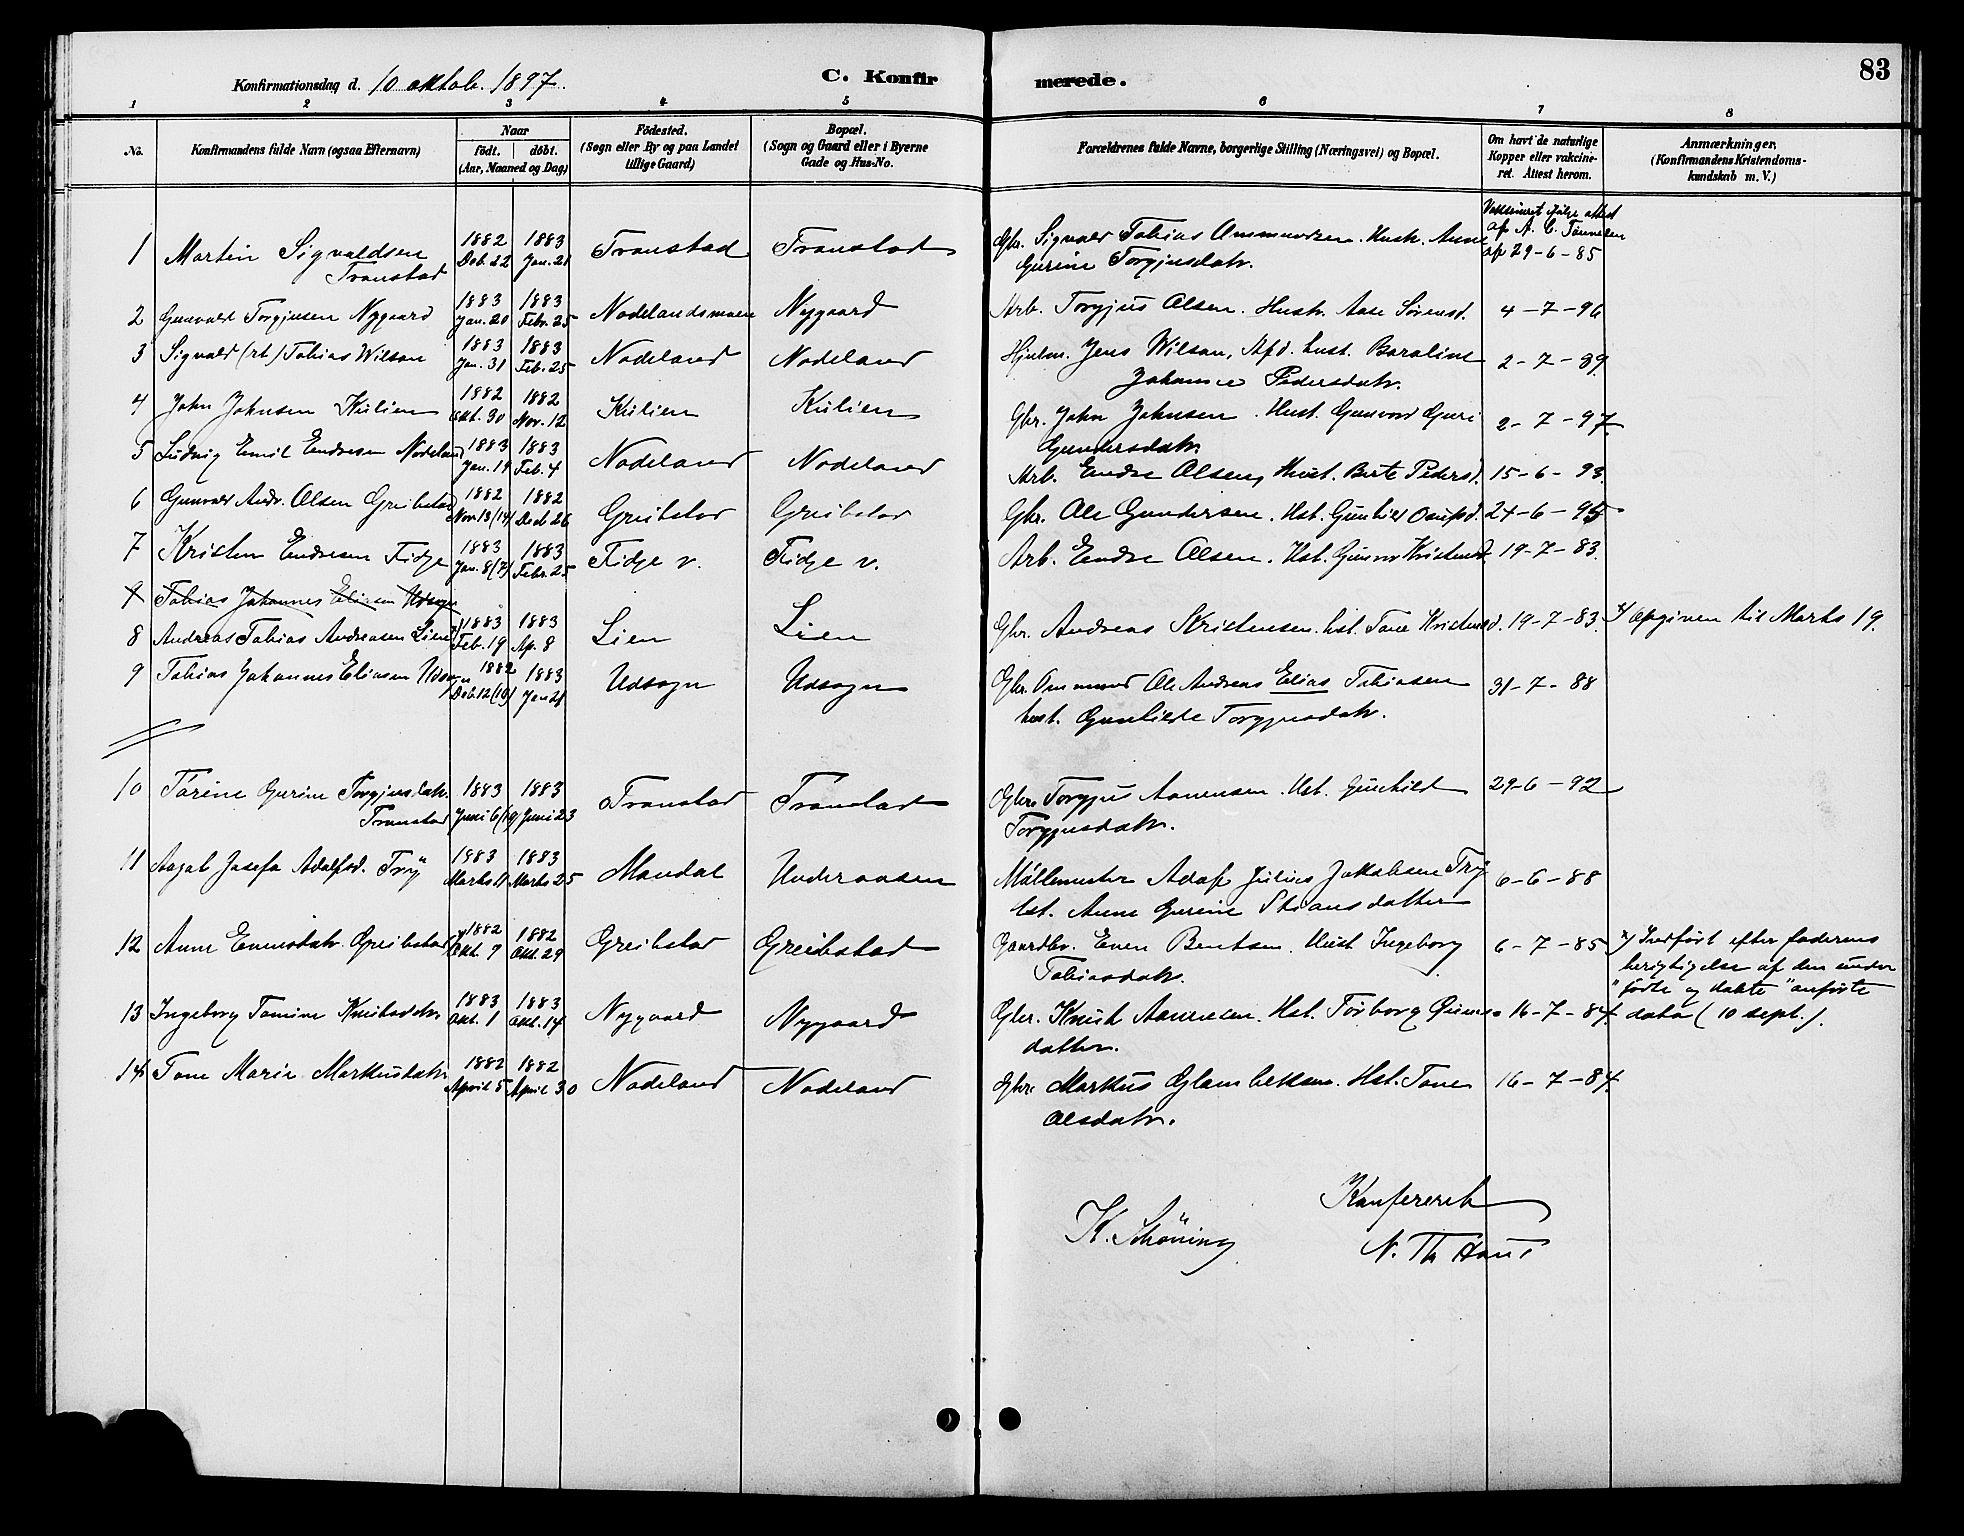 83
Konfirmationsdag d. 10 oktob. 1897.
C. Konfirmerede.
1 2 3 4 5 6 7 8
No.
Konfirmandens fulde Navn (ogsaa Efternavn)
Naar
födt. döbt.
(Aar, Maaned og Dag)
Födested.
(Sogn eller By og paa Landet
tillige Gaard)
Bopæl.
(Sogn og Gaard eller i Byerne
Gade og Hus-No.
Forældrenes fulde Navne, borgerlige Stilling (Næringsvei) og Bopæl.
Om havt de naturlige
Kopper eller vakcine-
ret. Attest herom.
Anmærkninger,
(Konfirmandens Kristendoms-
kundskab m. V.)
1 Martin Sigvaldsen Tronstad 1882 Deb. 22 1883 Jan. 21 Tronstad Tronstad Gbr. Sigvald Tobias Ommundsen. Hustr. Anne
Gurine Torgjusdatr.
Vakcineret ifølge attest
af A. C. Tønnesen
af 29-6-85
2 Gunvald Torgjusen Nygaard 1883 Jan. 20 1883 Febr. 25 Nodelandsmoen Nygaard Arb. Torgjus Olsen. Hustr. Aase Sørensd. 4-7-96
3 Sigvald (rt) Tobias Wilson 1883 Jan. 31 1883 Feb. 25 Nodeland Nodeland Hjulm. Jens Wilson, Afd. hust. Baroline
Johanne Pedersdatr. 2-7-89.
4 John Johnsen Kulien 1882 Okt. 30 1882 Nov. 12 Kulien Kulien Gbr. John Johnsen. Hust. Gunvor Guri
Gundersdatr. 2-7-97.
5 Ludvig Emil Endresen Nodeland 1883 Jan. 19 1883 Feb. 4 Nodeland Nodeland Arb. Endre Olsen, Hust. Berte Pedersd. 15-6-93.
6 Gunvald Andr. Olsen Greibstad 1882 Nov 13 (14) 1882 Deb 26 Greibstad Greibstad Gbr. Ole Gundersen. Hst. Gunhild Osupsd. 24-6-95
7 Kristen Endresen Fidje 1883 Jan. 8 (7) 1883 Febr. 25 Fidje v. Fidje v. Arb. Endre Olsen. Hst. Gunvor Kristensd. 19-7-83.
Tobias Johannes Eliasen Udsogn
8 Andreas Tobias Andreasen Lien 1883 Feb. 19 1883 Ap. 8 Lien Lien Gbr. Andreas Kristensen. hst. Tone Kristensd. 19-7-83. x) Opgiven til Marts 19.
9 Tobias Johannes Eliasen Udsogn 1882 Deb 12 (10) 1883 Jan 21 Udsogn Udsogn Gbr. Ommund Ole Andreas Elias Tobiasen
hust. Gunhilde Torgjusdatr. 31-7-88
10 Torine Gurine Torgjusdatr. Tronstad 1883 Juni 6 (19) 1883 Juni 23 Tronstad Tronstad Gbr. Torgjus Aanensen. Hst. Gunhild
Torgjusdatr. 29-6-92
11 Aagot Josefa Adolfsd. Try 1883 Marts 11 1883 Marts 25 Mandal Underaasen Möllemester Adolf Julius Jakobsen Try
hst. Anne Gurine Stiansdatter 6-6-88
12 Anne Evensdatr. Greibstad x) 1882 Okt. 7 1882 Okt. 29 Greibstad Greibstad Gaardbr. Even Bentsen. Hust. Ingeborg
Tobiasdatr. 6-7-85 x) Indført efter faderens
berigtigelse af den under
"fødte og døbte" anførte
dato (10 sept.).
13 Ingeborg Tomine Knutsdatr. 1883 Okt. 1 1883 Okt. 14 Nygaard Nygaard Gbr. Knut Aanensen. Hst. Torborg Guns-
datter. 16-7-84.
14 Tone Marie Markusdatr. 1882 April 5 1882 April 30 Nodeland Nodeland Gbr. Markus Glambeksen. Hst. Tone
Olsdatr. 16-7-84.
Konfereret
K. Schöning N. Th